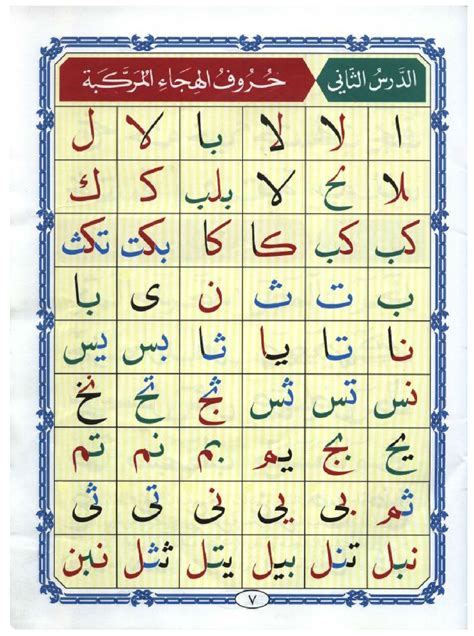 الدَّرسُ الثَّاني حُرُوفُ الهِجَاءِ المُرَكَّبَة
ا لا لا با لا ل
لا لا بلب ک ك
كب كب كا كا بكت تكث
ب ت ث ن ى با
نا تا يا ثا بس يس
نس تس ثس ثج تح نخ
يح بج يم بم نم تم
ثم بى يى نى تى ثى
نبل تنل بيل يتل ثثل نبن
٧